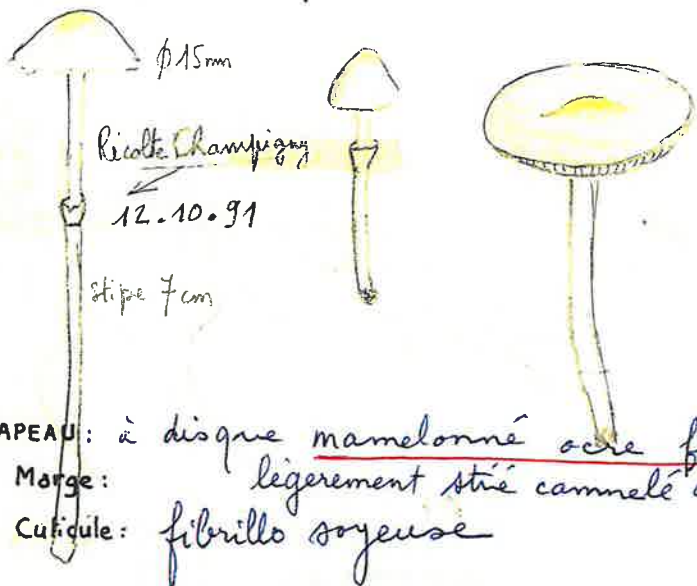 φ 15mm
Récolte Champigny
12.10.91
stipe 7 cm
APEAU: à disque mamelonné ocre
Marge: légerement strié cannelé
Cuticule: fibrillo soyeuse